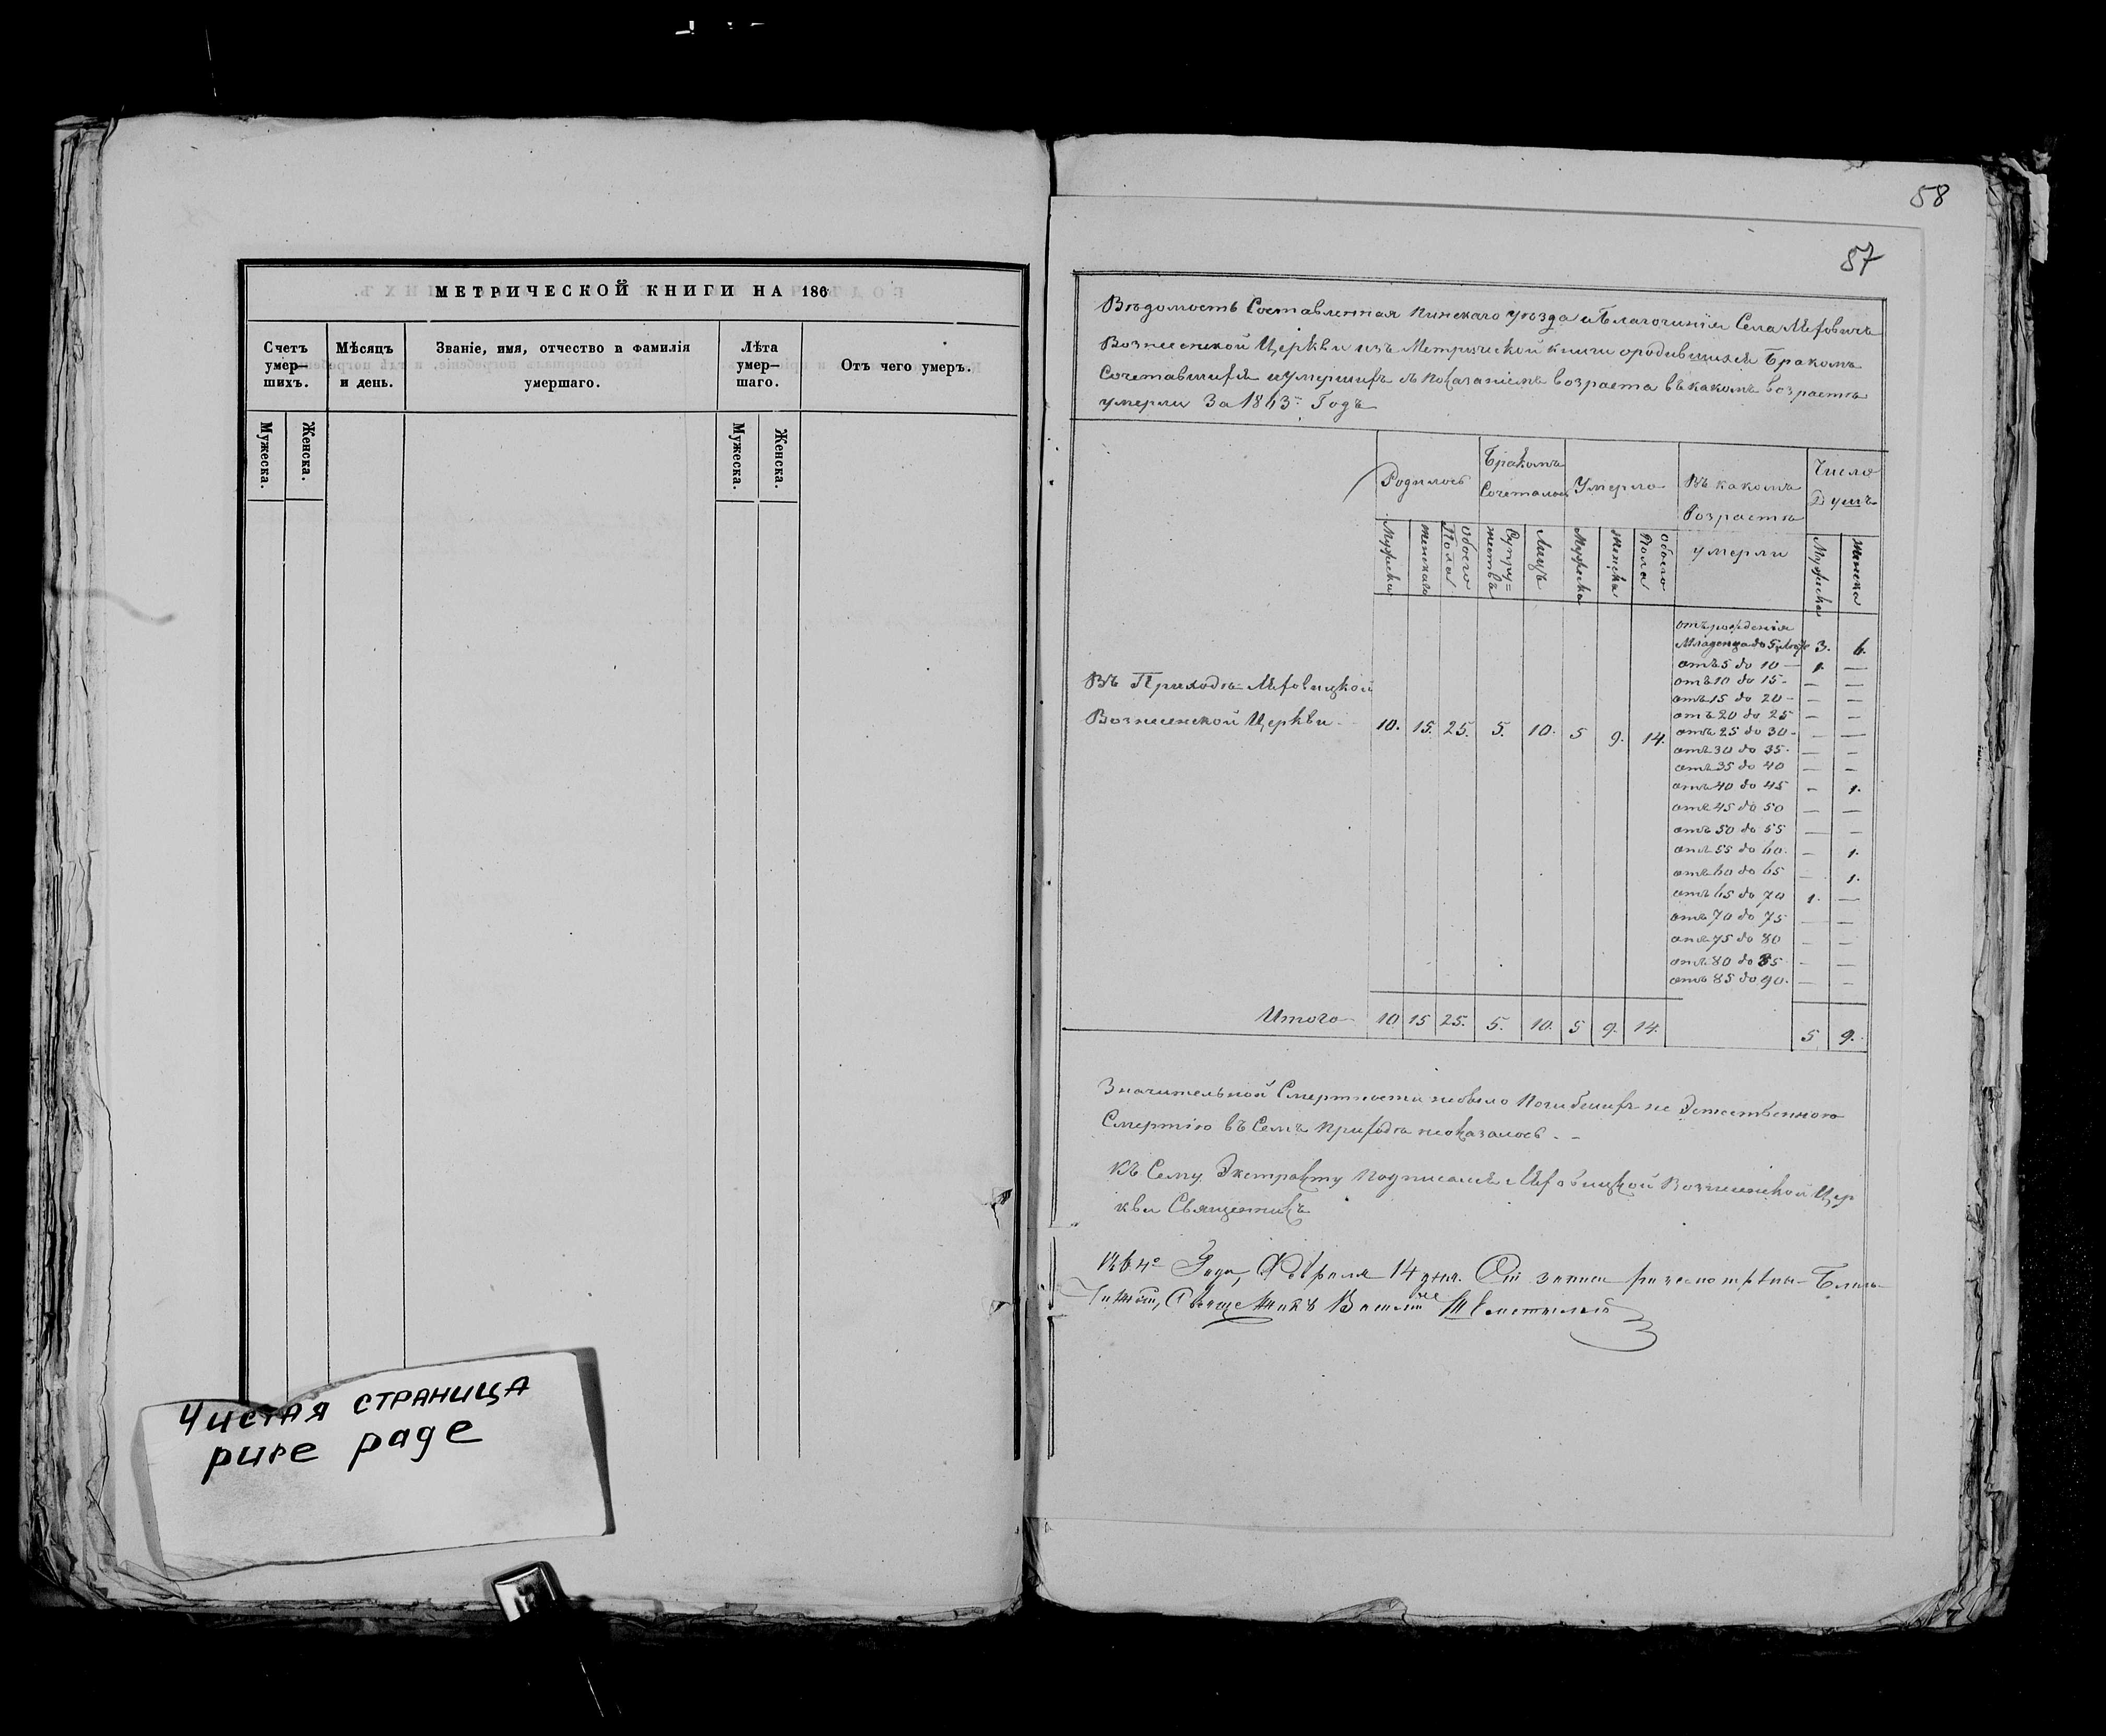 МЕТРИЧЕСКОЙ КНИГИ НА 186
Счетъ умер—шихъ.
Мѣсяцъ и день.
Званіе, имя, отчество и фамилія умершаго.
Лѣта умер—шаго.
Отъ чего умеръ.
Мужеска.
Женска.
Мужеска.
Женска.
Чистая страница
pure page
58
57
Вѣдомость Составленная Пинскаго уѣзда и Благочинія Села
Вознесенской Церкви изъ Метрической книги ородившихся Бракомъ
Сочетавшихся и Умершихъ съ показаніемъ возраста въ какомъ возрастѣ
умерли За 1863 Годъ
Родилось
Бракомъ Сочеталось
Умерло
Въ какомъ Возрастѣ умерли
Число Душъ
Мужска
женскаго
Обоего Пола
Супру=жествъ
Лицъ
Мужска
женска
Обоего Пола
Мужска
женска
Въ Приходѣ
Вознесенской Церкви
10. 15. 25. 5. 10. 5 9. 14.
отъ рожденія
Младенца до 5 лѣтъ 3. 6.
отъ 5 до 10 — 1. —
отъ 10 до 15 - — —
отъ 15 до 20 - — —
отъ 20 до 25 — —
отъ 25 до 30 - — —
отъ 30 до 35 - — —
отъ 35 до 40 — —
отъ 40 до 45 - 1.
отъ 45 до 50 — —
отъ 50 до 55 — —
отъ 55 до 60. — 1.
отъ 60 до 65 — 1.
отъ 65 до 70 1. —
отъ 70 до 75 — —
отъ 75 до 80 — —
отъ 80 до 85 — —
отъ 85 до 90. — —
Итого 10 15 25. 5. 10. 5 9. 14. 5 9.
Значительной Смертности небыло Погибшихъ не Естественною
Смертію въ Семъ приходѣ неоказалось. -
Къ Сему Экстракту подписался Вознесенской Цер
кви Священникъ
1864го Года, Февраля 14 дня.
Священникъ